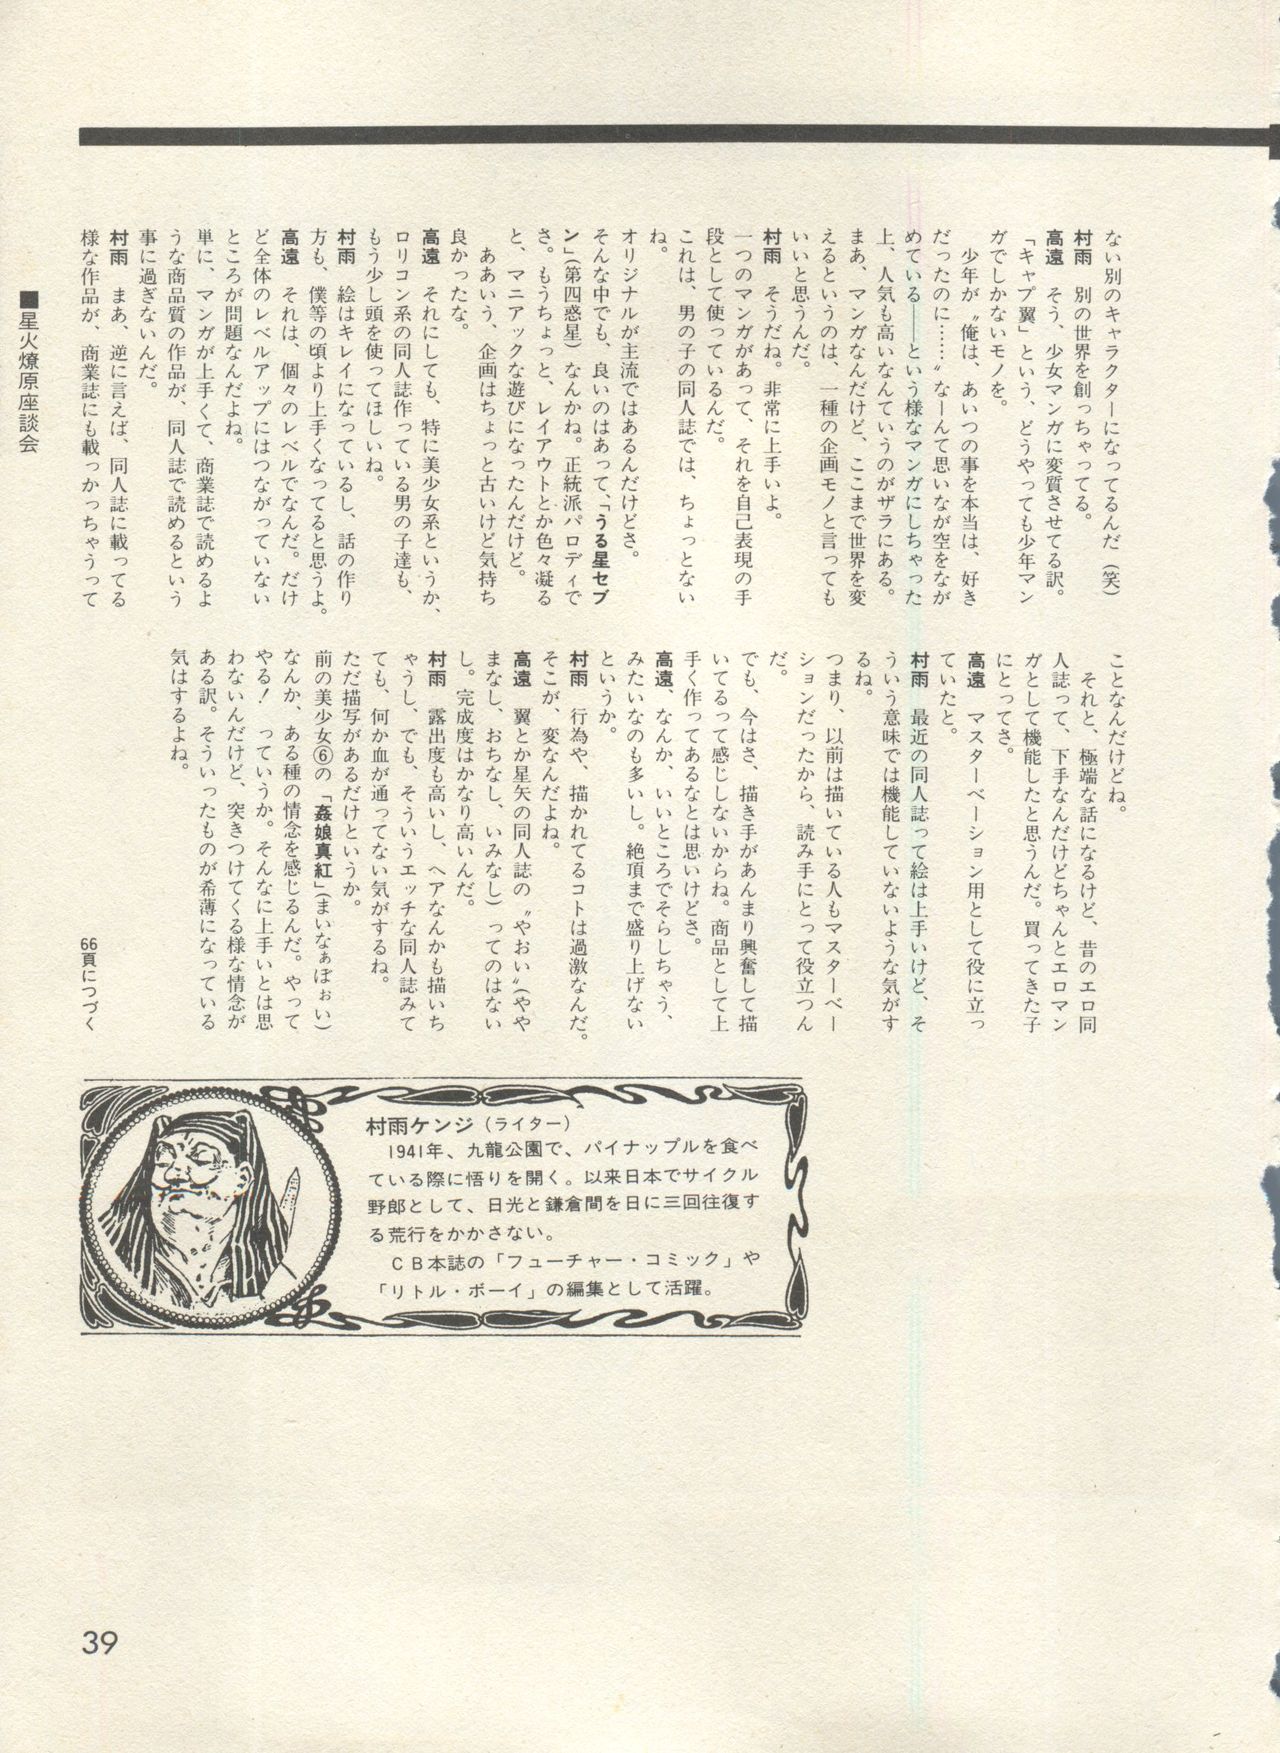 ない別のキャラクターになってるんだ（笑）
村雨　別の世界を創っちゃってる。
高遠　そう、少女マンガに変質させてる訳。
「キャプ翼」という、どうやっても少年マン
ガでしかないモノを。
　少年が〝俺は、あいつの事を本当は、好き
だったのに……〟なーんて思いなが空をなが
めている――という様なマンガにしちゃった
上、人気も高いなんていうのがザラにある。
まあ、マンガなんだけど、ここまで世界を変
えるというのは、一種の企画モノと言っても
いいと思うんだ。
村雨　そうだね。非常に上手いよ。
一つのマンガがあって、それを自己表現の手
段として使っているんだ。
これは、男の子の同人誌では、ちょっとない
ね。
オリジナルが主流ではあるんだけどさ。
そんな中でも、良いのはあって、「うる星セブ
ン」（第四惑星）なんかね。正統派パロディで
さ。もうちょっと、レイアウトとか色々凝る
と、マニアックな遊びになったんだけど。
　ああいう、企画はちょっと古いけど気持ち
良かったな。
高遠　それにしても、特に美少女系というか、
ロリコン系の同人誌作っている男の子達も、
もう少し頭を使ってほしいね。
村雨　絵はキレイになっているし、話の作り
方も、僕等の頃より上手くなってると思うよ。
高遠　それは、個々のレベルでなんだ。だけ
ど全体のレベルアップにはつながっていない
ところが問題なんだよね。
単に、マンガが上手くて、商業誌で読めるよ
うな商品質の作品が、同人誌で読めるという
事に過ぎないんだ。
村雨　まあ、逆に言えば、同人誌に載ってる
様な作品が、商業誌にも載っかっちゃうって
ことなんだけどね。
　それと、極端な話になるけど、昔のエロ同
人誌って、下手なんだけどちゃんとエロマン
ガとして機能したと思うんだ。買ってきた子
にとってさ。
高遠　マスターベーション用として役に立っ
ていたと。
村雨　最近の同人誌って絵は上手いけど、そ
ういう意味では機能していないような気がす
るね。
つまり、以前は描いている人もマスターベー
ションだったから、読み手にとって役立つん
だ。
でも、今はさ、描き手があんまり興奮して描
いてるって感じしないからね。商品として上
手く作ってあるなとは思いけどさ。
高遠、なんか、いいところでそらしちゃう、
みたいなのも多いし。絶頂まで盛り上げない
というか。
村雨　行為や、描かれてるコトは過激なんだ。
そこが、変なんだよね。
高遠　翼とか星矢の同人誌の〝やおい〟（やや
まなし、おちなし、いみなし）ってのはない
し。完成度はかなり高いんだ。
村雨　露出度も高いし、ヘアなんかも描いち
ゃうし、でも、そういうエッチな同人誌みて
ても、何か血が通ってない気がするね。
ただ描写があるだけというか。
前の美少女⑥の「姦娘真紅」（まいなぁぼぉい）
なんか、ある種の情念を感じるんだ。やって
やる！　っていうか。そんなに上手いとは思
わないんだけど、突きつけてくる様な情念が
ある訳。そういったものが希薄になっている
気はするよね。
66頁につづく
■星火燎原座談会
村雨ケンジ（ライター）
　1941年、九龍公園で、パイナップルを食べ
ている際に悟りを開く。以来日本でサイクル
野郎として、日光と鎌倉間を日に三回往復す
る荒行をかかさない。
　ＣＢ本誌の「フューチャー・コミック」や
「リトル・ボーイ」の編集として活躍。
39